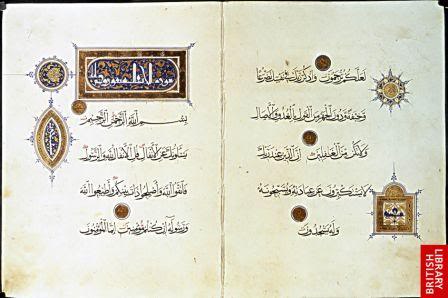 لعلكم ترحمون واذكر ربك في نفسك تضرعا
وخيفة ودون الجهر من القول بالغدو والآصال
ولا تكن من الغافلين إن الذين عند ربك
لا يستكبرون عن عبادته ويسبحونه
وله يسجدون
سورة الأنفال
بسم الله الرحمن الرحيم
يسألونك عن الأنفال قل الأنفال لله والرسول
فاتقوا الله وأصلحوا ذات بينكم وأطيعوا الله
ورسوله إن كنتم مؤمنين إنما المؤمنون
BRITISH
LIBRARY